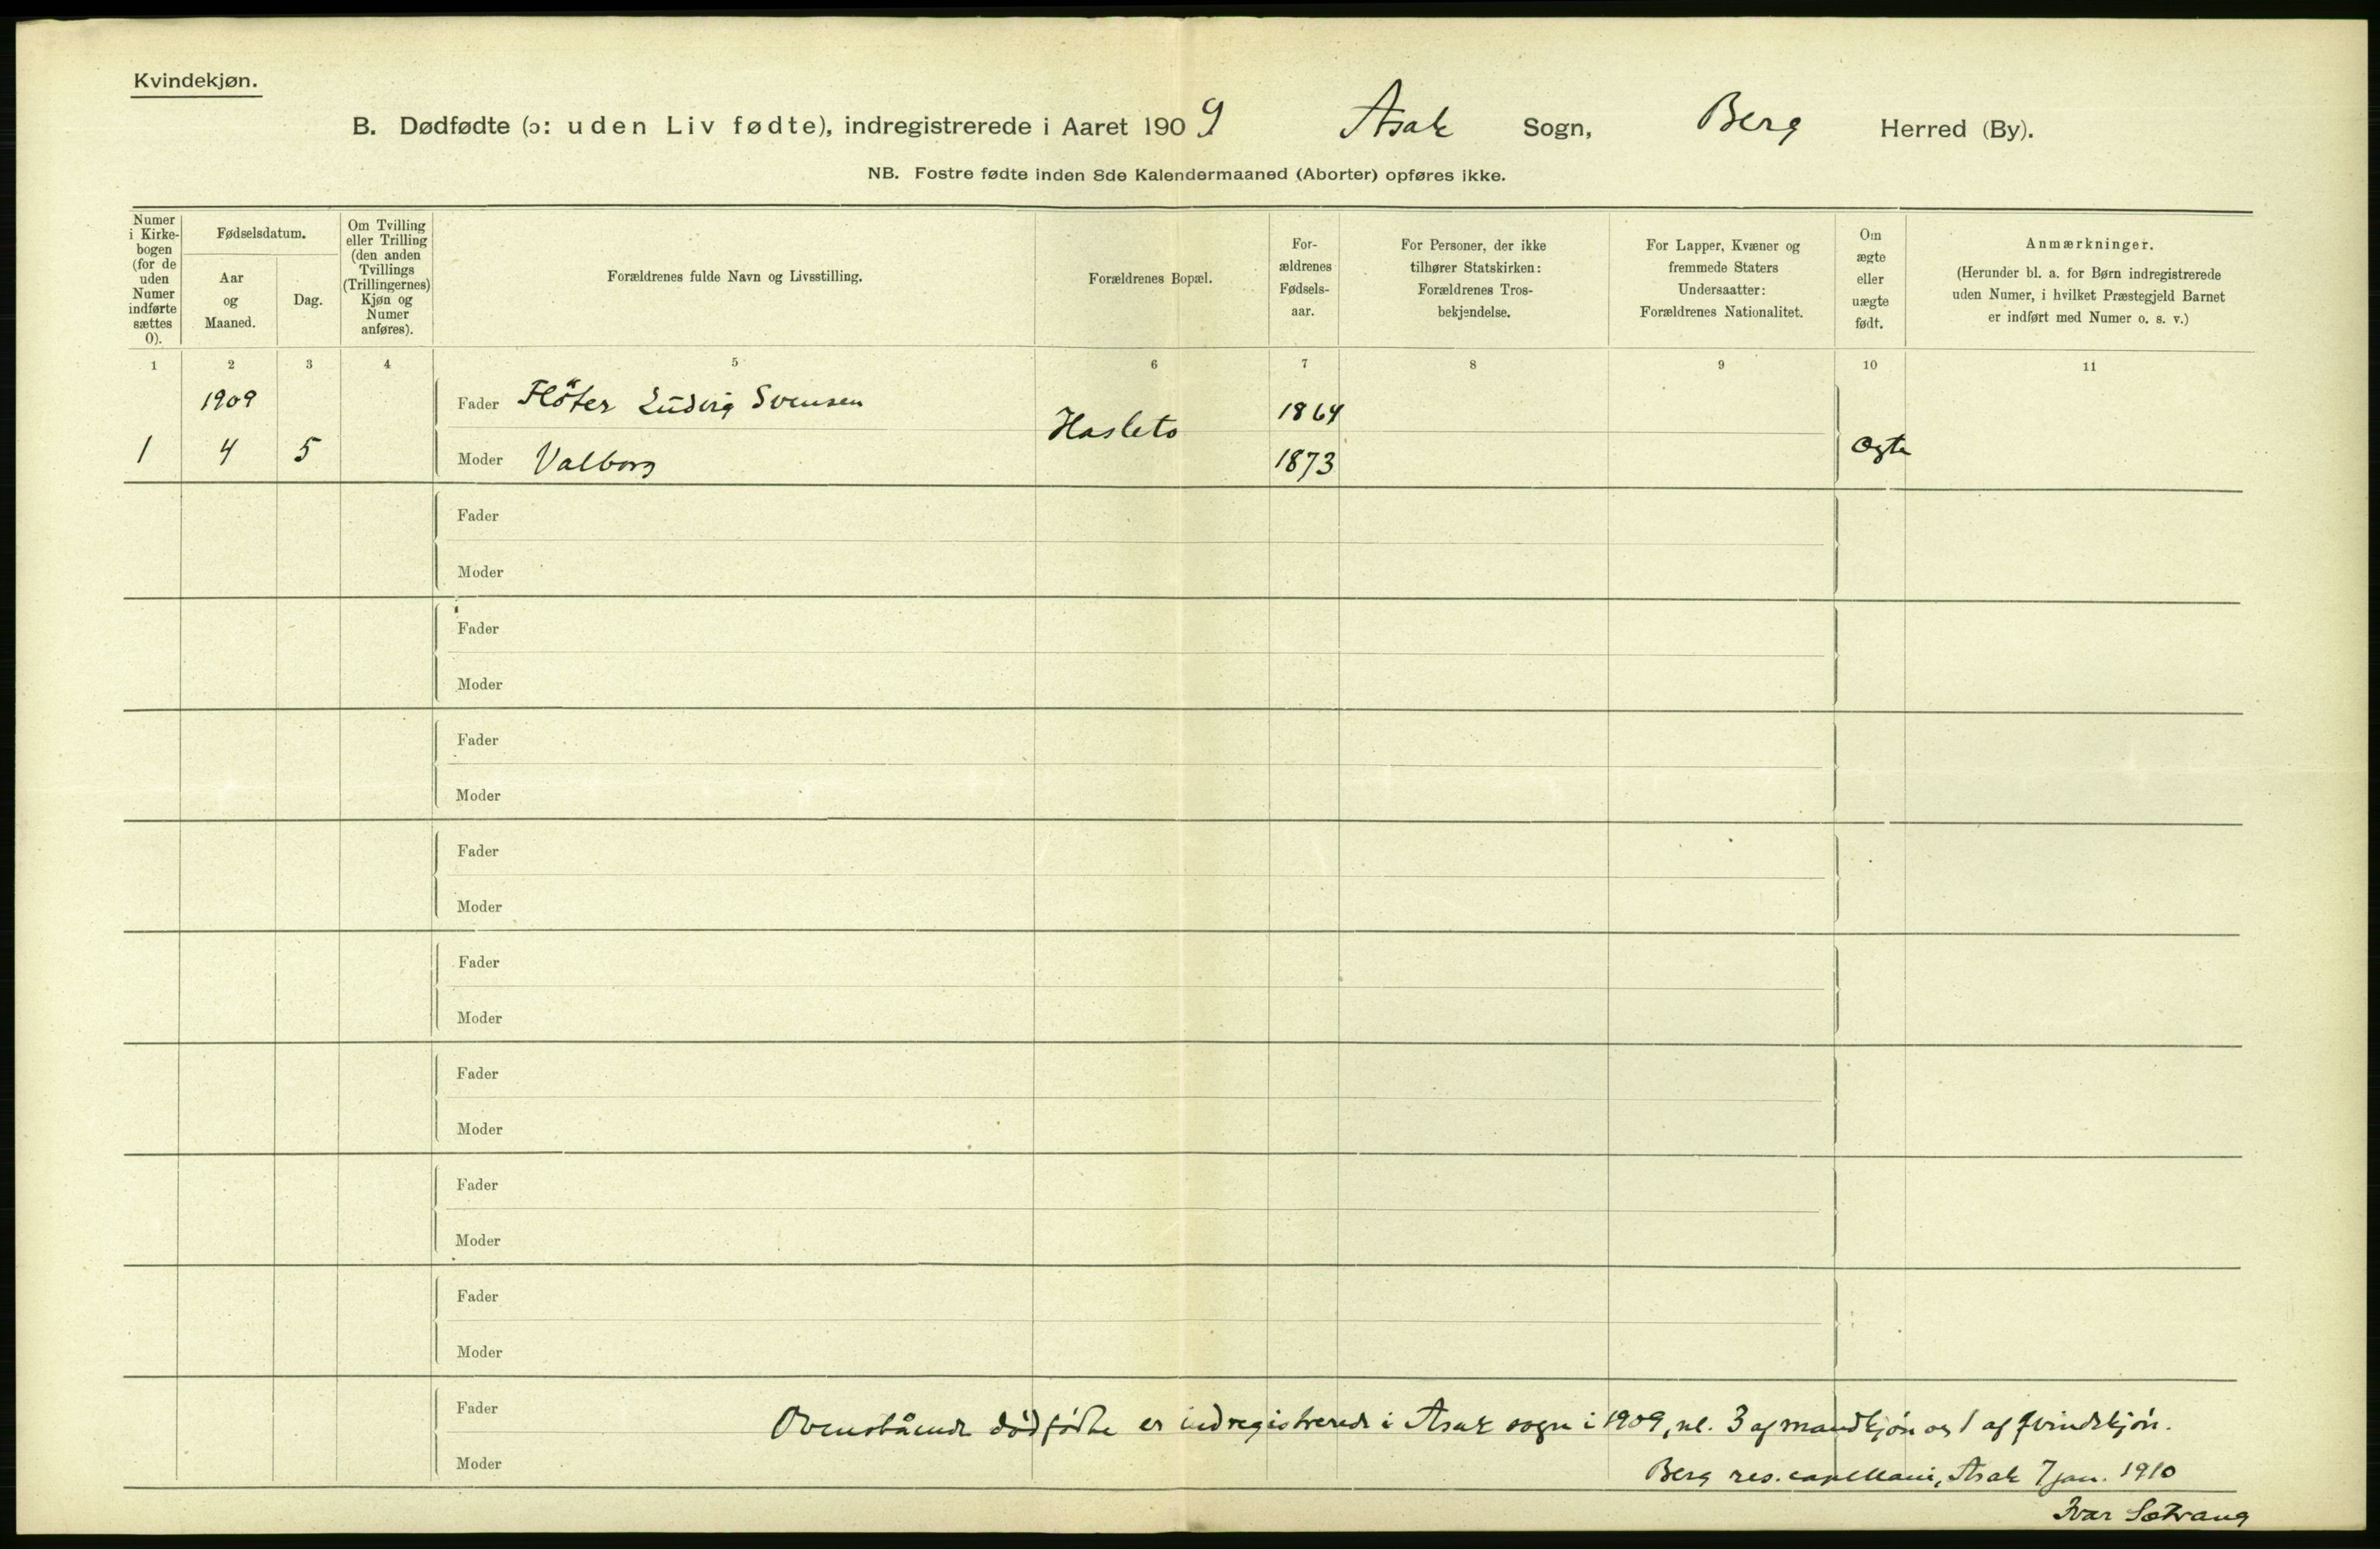 Kvindekjøn.
B. Dødfødte (ɔ: uden Liv fødte), indregistrerede i Aaret 1909 Asak Sogn, Berg Herred (By).
NB. Fostre fødte inden 8de Kalendermaaned (Aborter) opføres ikke.
Numer i Kirke-bogen (for de uden Numer indførte sættes 0).
Fødselsdatum.
Aar og Maaned.
Dag.
Om Tvilling eller Trilling (den anden Tvillings (Trillingernes) Kjøn og Numer anføres).
Forældrenes fulde Navn og Livsstilling.
Forældrenes Bopæl.
For-ældrenes Fødsels-aar.
For Personer, der ikke tilhører Statskirken: Forældrenes Tros-bekjendelse.
For Lapper, Kvæner og fremmede Staters Undersaatter: Forældrenes Nationalitet.
Om ægte eller uægte født.
Anmærkninger.
(Herunder bl. a. for Børn indregistrerede uden Numer, i hvilket Præstegjeld Barnet er indført med Numer o. s. v.)
1 2 3 4 5 6 7 8 9 10 11
1909 Fader Flöter Ludvig Svensen Hasleto 1864
1 4 5 Moder Valborg 1873 Ægte
Fader
Moder
Fader
Moder
Fader
Moder
Fader
Moder
Fader
Moder
Fader
Moder
Fader
Moder
Fader
Moder
Fader
Ovenstående dødfødte er indregistrerede i Asak sogn i 1909, nl. 3 af mandkjøn og 1 af kvindekjøn.
Moder
Berg res. capellani, Asak 7 jan. 1910
Ivar Sætrang